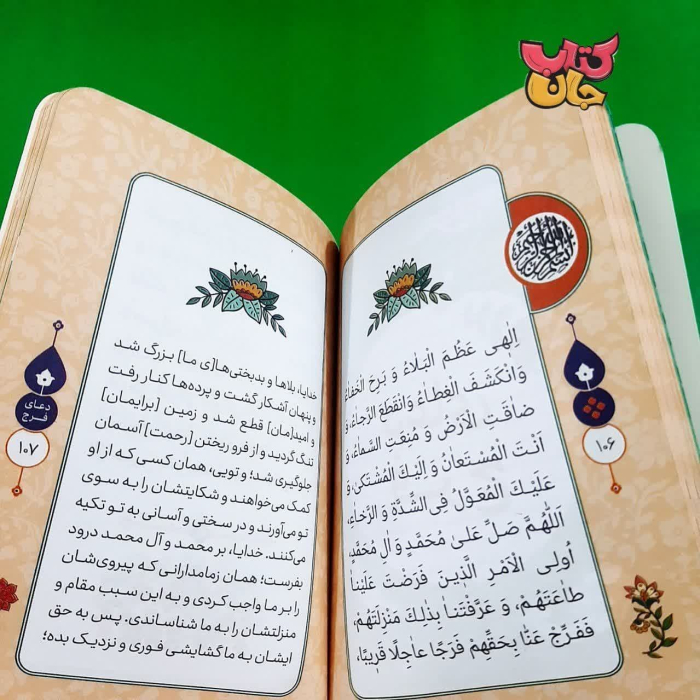 کتاب
جان
بسم الله الرحمن الرحیم
اِلٰهی عَظُمَ الْبَلٰاءُ وَ بَرِحَ الْخَفٰاءُ
وَانْکَشَفَ الْغِطٰاءُ وَانْقَطَعَ الرَّجٰاءُ، وَ
ضٰاقَتِ الْاَرْضُ وَ مُنِعَتِ السَّمٰاءُ، وَ
اَنْتَ الْمُسْتَعٰانُ وَ اِلَیْكَ الْمُشْتَکیٰ، وَ
عَلَیْكَ الْمُعَوَّلُ فِی الشِّدَّةِ وَ الرَّخٰاءِ،
اَللّٰهُمَّ صَلِّ عَلیٰ مُحَمَّدٍ وَ اٰلِ مُحَمَّدٍ،
اُولِی الْاَمْرِ الَّذینَ فَرَضْتَ عَلَیْنٰا
طٰاعَتَهُمْ، وَ عَرَّفْتَنٰا بِذٰلِكَ مَنْزِلَتَهُمْ،
فَفَرِّجْ عَنّٰا بِحَقِّهِمْ فَرَجًا عٰاجِلًا قَریبًا،
۱۰۶
خدایا، بلاها و بدبختی‌ها[ی ما] بزرگ شد
و پنهان آشکار گشت و پرده‌ها کنار رفت
و امید[مان] قطع شد و زمین [برایمان]
تنگ گردید و از فرو ریختن [رحمت] آسمان
جلوگیری شد؛ و تویی، همان کسی که از او
کمک می‌خواهند و شکایتشان را به سوی
تو می‌آورند و در سختی و آسانی به تو تکیه
می‌کنند. خدایا، بر محمد و آل محمد درود
بفرست؛ همان زمامدارانی که پیروی‌شان
را بر ما واجب کردی و به این سبب مقام و
منزلتشان را به ما شناساندی. پس به حق
ایشان به ما گشایشی فوری و نزدیک بده؛
دعای
فرج
۱۰۷